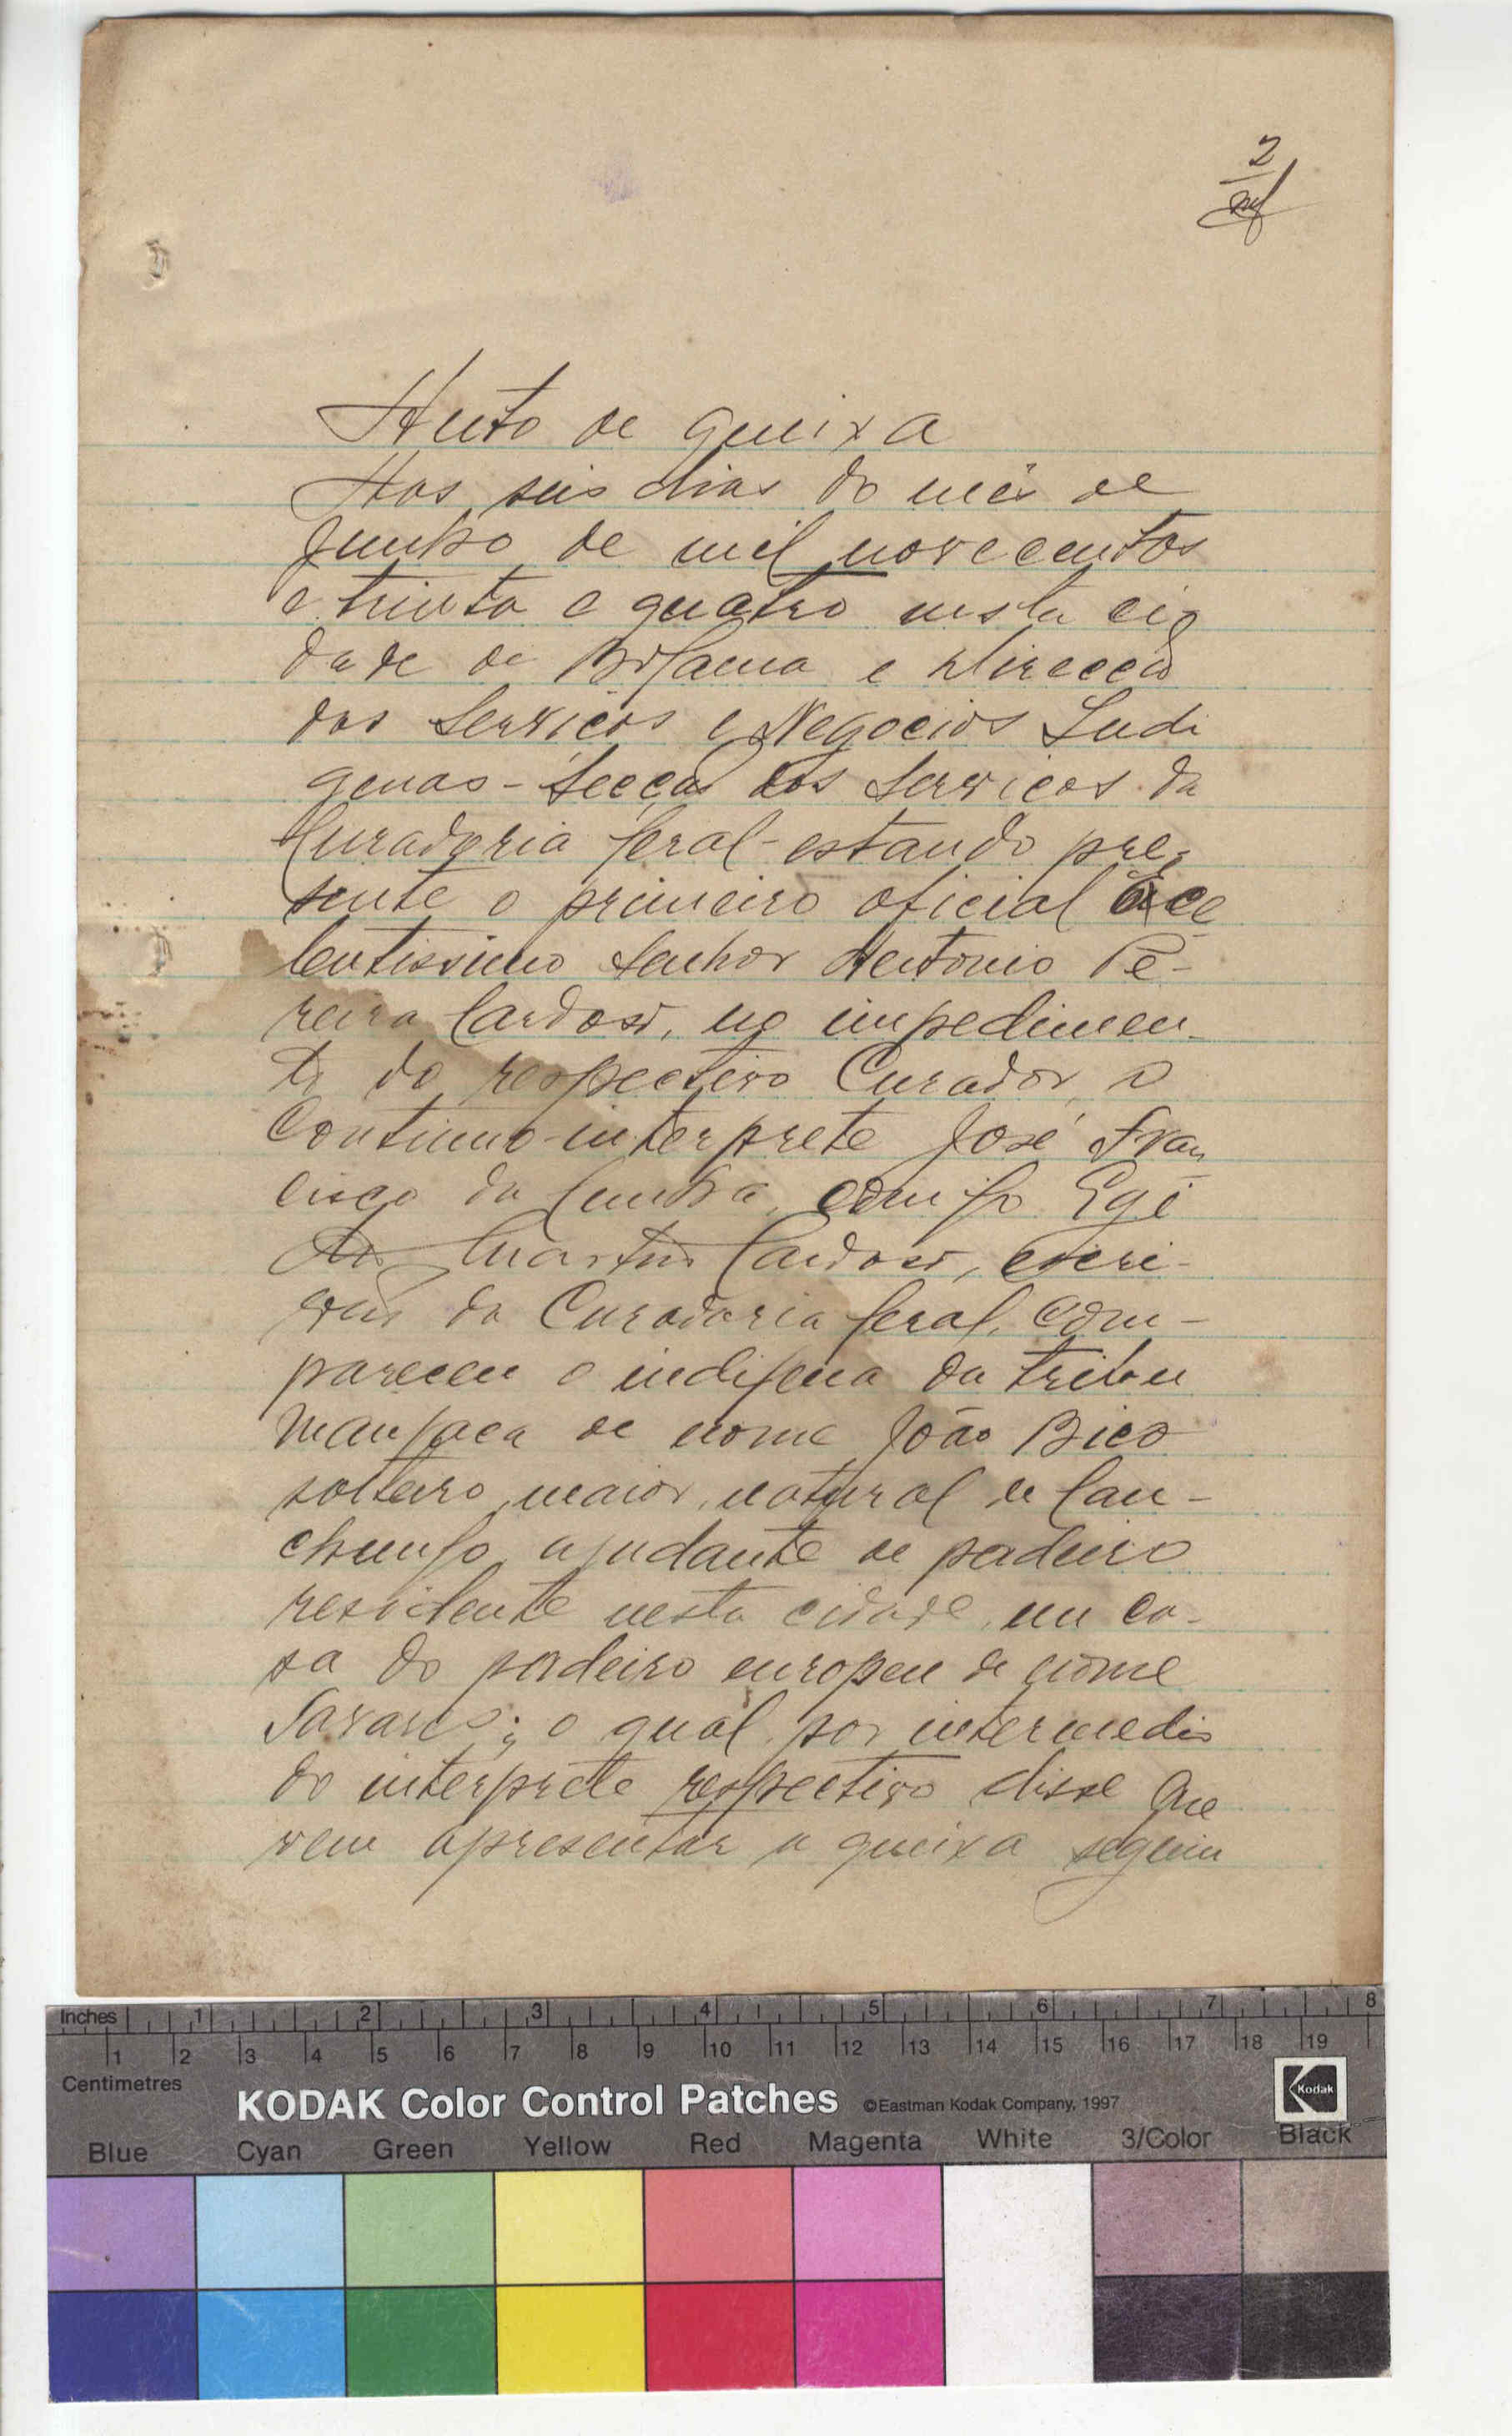 2
Auto de queixa
Aos seis dias do mês de
Junho de mil novecentos
e trinta e quatro nesta ci
dade de Bolama e Direcção
dos Serviços e Negocios Indi
genas - Secção dos Serviços da
Curadoria Geral - estando pre-
sente o primeiro oficial Exce
lentissimo Senhor Antonio Pe-
reira Cardoso, no impedimen-
to do respectivo Curador, o
Continuo-interprete José Fran
cisco da Cunha, comigo Egi
dio Martins Cardoso, escri-
vão da Curadoria Geral, com-
pareceu o indigena da tribu
Manjaca de nome João Bico
solteiro, maior, natural de Can-
chungo, ajudante de padeiro
residente nesta cidade, em ca-
sa do padeiro europeu de nome
Tavares; o qual por intermedio
do interprete respectivo disse que
vem apresentar a queixa seguin
Inches 1 2 3 4 5 6 7 8
1 2 3 4 5 6 7 8 9 10 11 12 13 14 15 16 17 18 19
Centimetres
KODAK Color Control Patches ©Eastman Kodak Company, 1997 Kodak
Blue Cyan Green Yellow Red Magenta White 3/Color Black